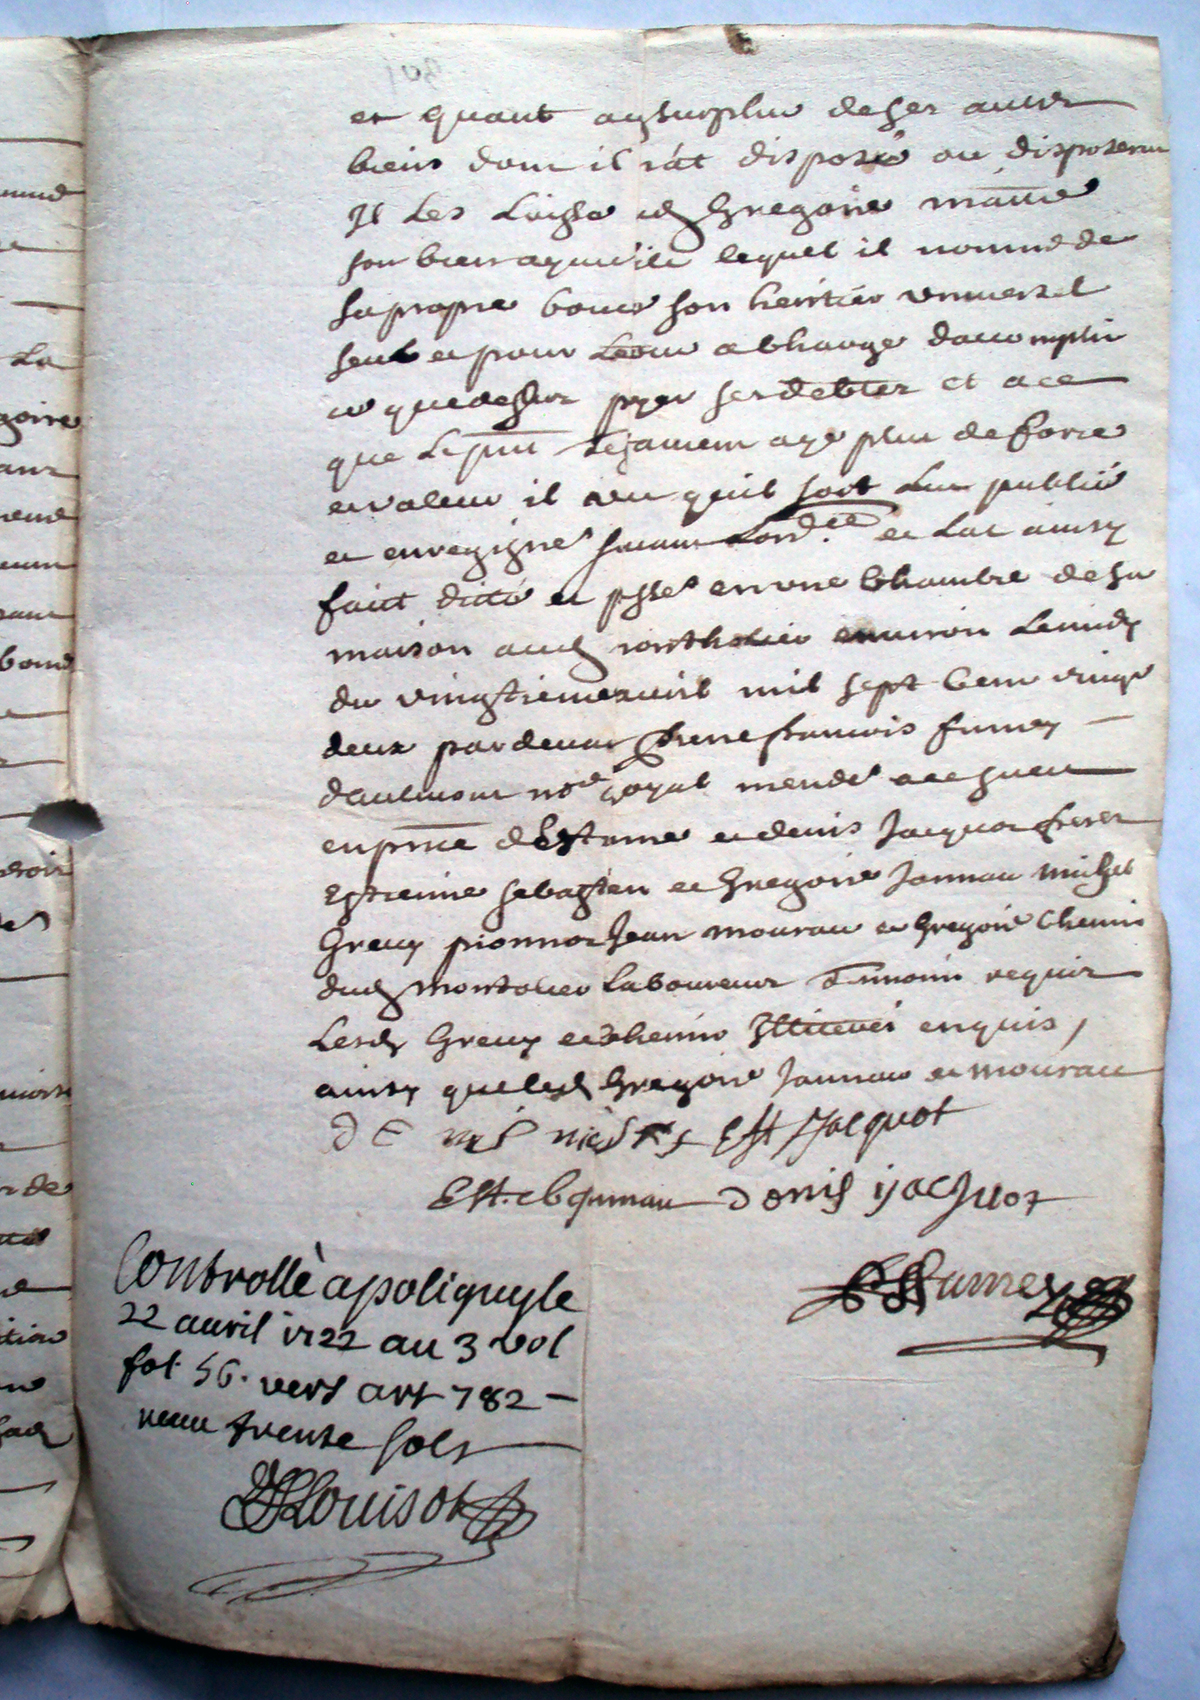 et quant au surplus de ses autres
biens dont il n'at disposé ou disposera
Il les laisse aud Gregoire
son bien aymé filz lequel il nomme de
sa propre bouche son heritier universel
seul et pour le tout a charge d'accomplir
ce que dessus payer ses debtes et a ce
que le pnt testament aye plus de force
et valeur il veut qu'il soit leu publié
et enregistré suivant Lord.ce et Lat ainsy
faict dicté et passé en une chambre de sa
maison aud montholier environ le midy
du vingtieme avril mil sept cent vingt
deux par devant pierre françois fumey
d'aulmont no.re royal mendé a cest effect
en pnce d'Estienne et denis Jacquot freres
Estienne sebastien et Gregoire Jannau michel
Greuy pionnot Jean mourau et Gregoire Chemin
dud montolier laboureurs tesmoins requis
Lesd Greuy et Chemin Illiterés enquis,
ainsy que lesd Gregoire Jannau et mourau
Est Jacquot
denis ijacquot
Controllè a poligny le
22 auril 1722 au 3 vol
fol. 56. vers art 782 —
receu trente sols
Louisot
fumey